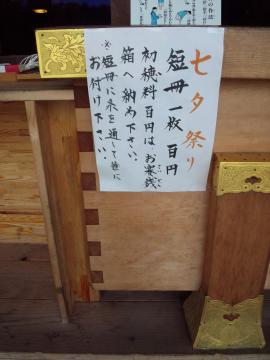 七夕祭り
短冊一枚 百円
初穂料百円はお賽銭
さいせん
箱へ納め下さい。
※短冊に糸を通して笹に
お付け下さい。